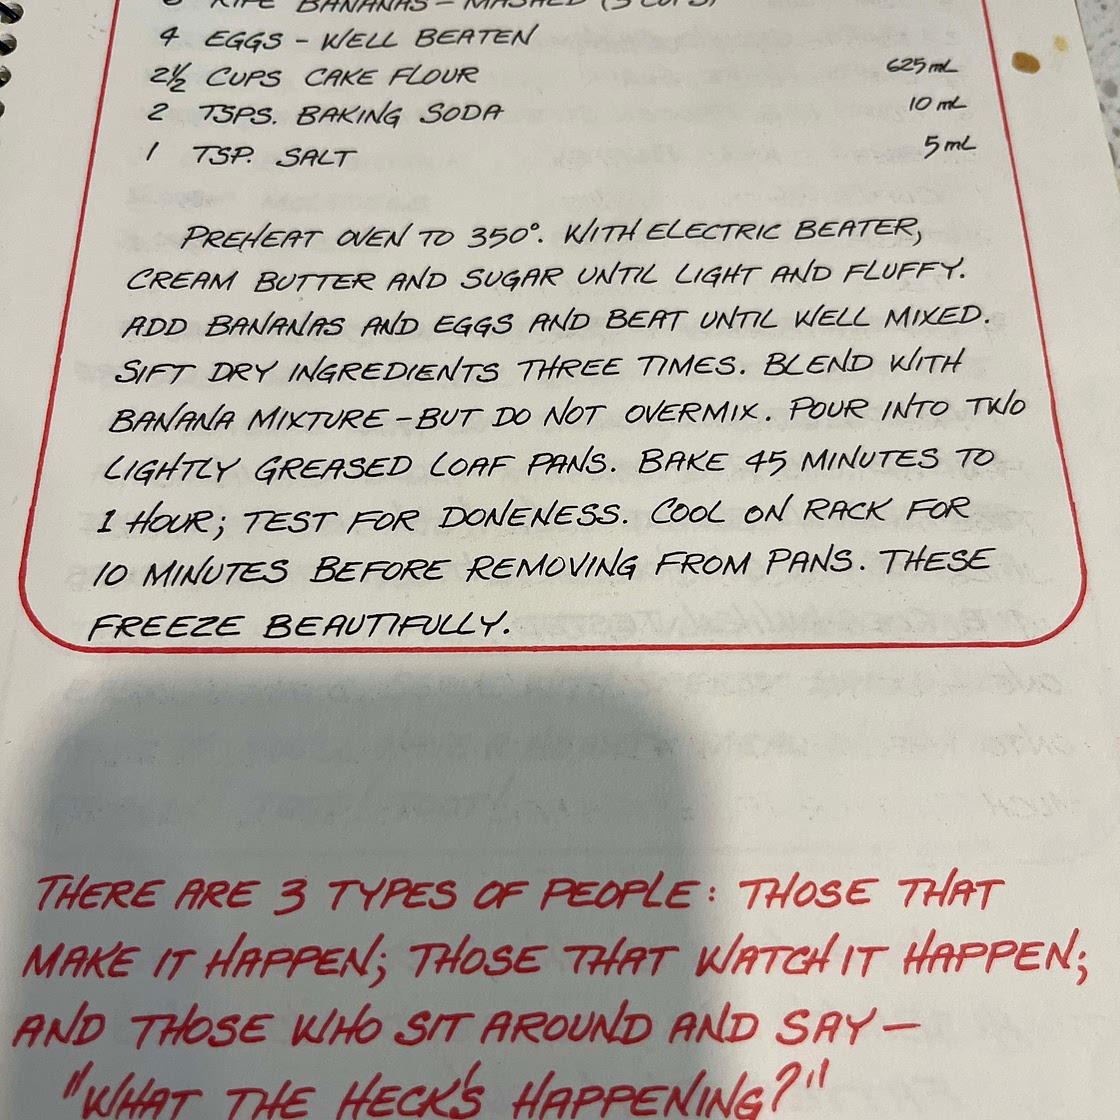 RIPE BANANAS - MASHED (3 CUPS)
4 EGGS - WELL BEATEN
2½ CUPS CAKE FLOUR 625 mL
2 TSPS. BAKING SODA 10 mL
1 TSP. SALT 5 mL
PREHEAT OVEN TO 350°. WITH ELECTRIC BEATER,
CREAM BUTTER AND SUGAR UNTIL LIGHT AND FLUFFY.
ADD BANANAS AND EGGS AND BEAT UNTIL WELL MIXED.
SIFT DRY INGREDIENTS THREE TIMES. BLEND WITH
BANANA MIXTURE - BUT DO NOT OVERMIX. POUR INTO TWO
LIGHTLY GREASED LOAF PANS. BAKE 45 MINUTES TO
1 HOUR; TEST FOR DONENESS. COOL ON RACK FOR
10 MINUTES BEFORE REMOVING FROM PANS. THESE
FREEZE BEAUTIFULLY.
THERE ARE 3 TYPES OF PEOPLE: THOSE THAT
MAKE IT HAPPEN; THOSE THAT WATCH IT HAPPEN;
AND THOSE WHO SIT AROUND AND SAY -
"WHAT THE HECK'S HAPPENING?"